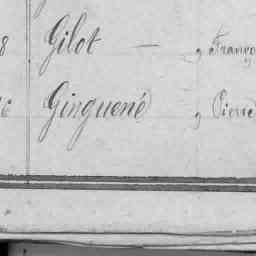 8 Gilot — „ Franço
6 Ginguené „ Pierre